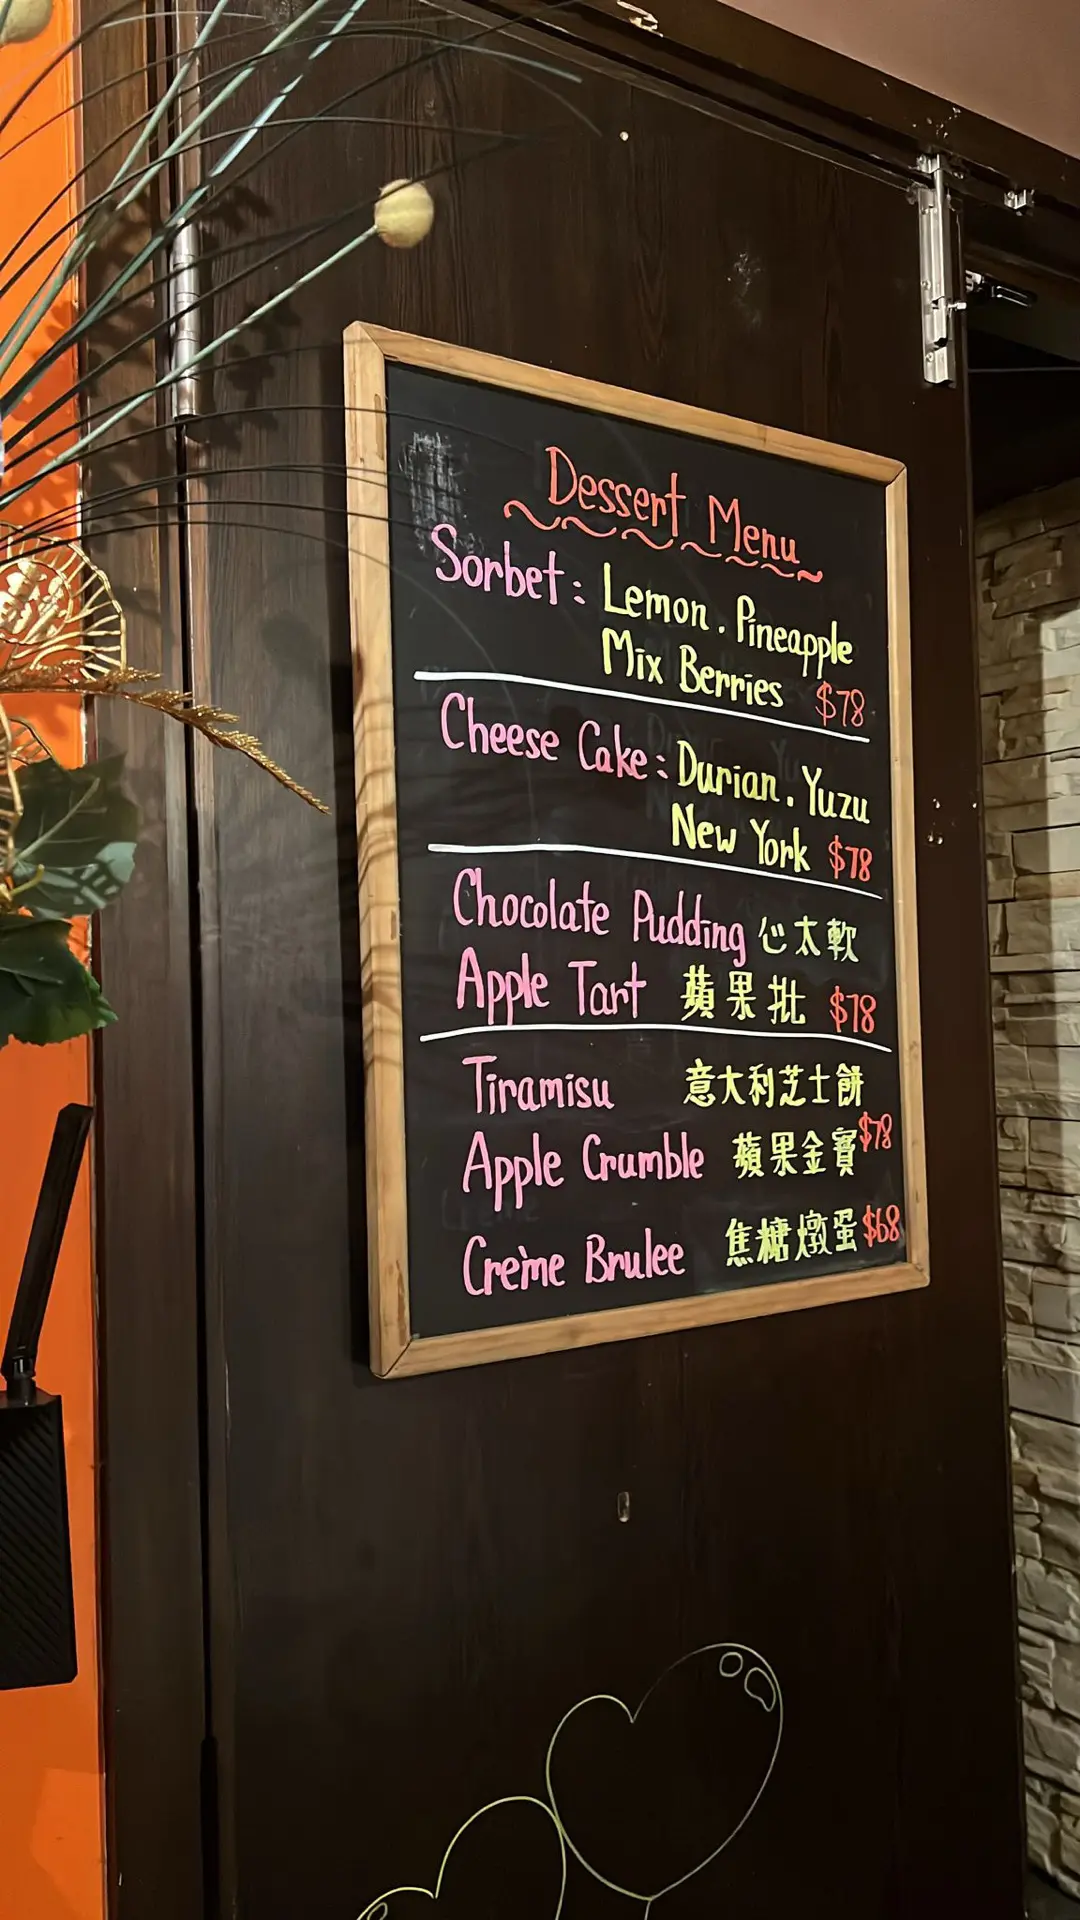 Dessert Menu
Sorbet : Lemon . Pineapple
Mix Berries $78
Cheese Cake : Durian . Yuzu
New York $78
Chocolate Pudding 心太軟
Apple Tart 蘋果批 $78
Tiramisu 意大利芝士餅
Apple Crumble 蘋果金寶 $78
Crème Brulee 焦糖燉蛋 $68